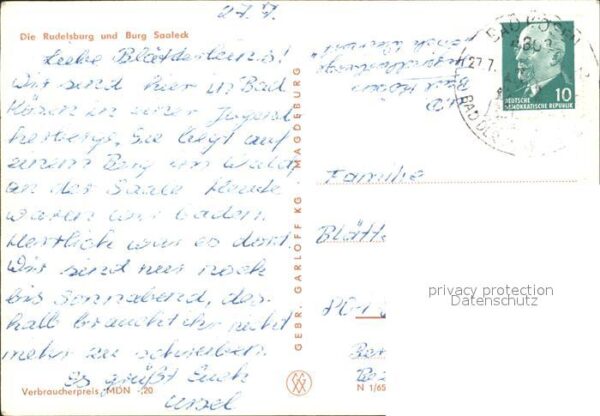 27.7.
Die Rudelsburg und Burg Saaleck
Liebe Blätterleins!
Wir sind hier in Bad
Kösen in einer Jugend
herberge. Sie liegt auf
einem Berg im Wald,
an der Saale. Heute
waren wir baden.
Herrlich war es dort.
Wir sind nur noch
bis Sonnabend, des
halb braucht ihr nicht
mehr zu schreiben.
Es grüßt Euch
Ursel
Verbraucherpreis MDN -,20
GEBR. GARLOFF KG · MAGDEBURG
Bad Kösen
BAD KÖSEN
27.7.
DEUTSCHE
DEMOKRATISCHE REPUBLIK
10
Familie
Blätt
privacy protection
Datenschutz
N 1/65